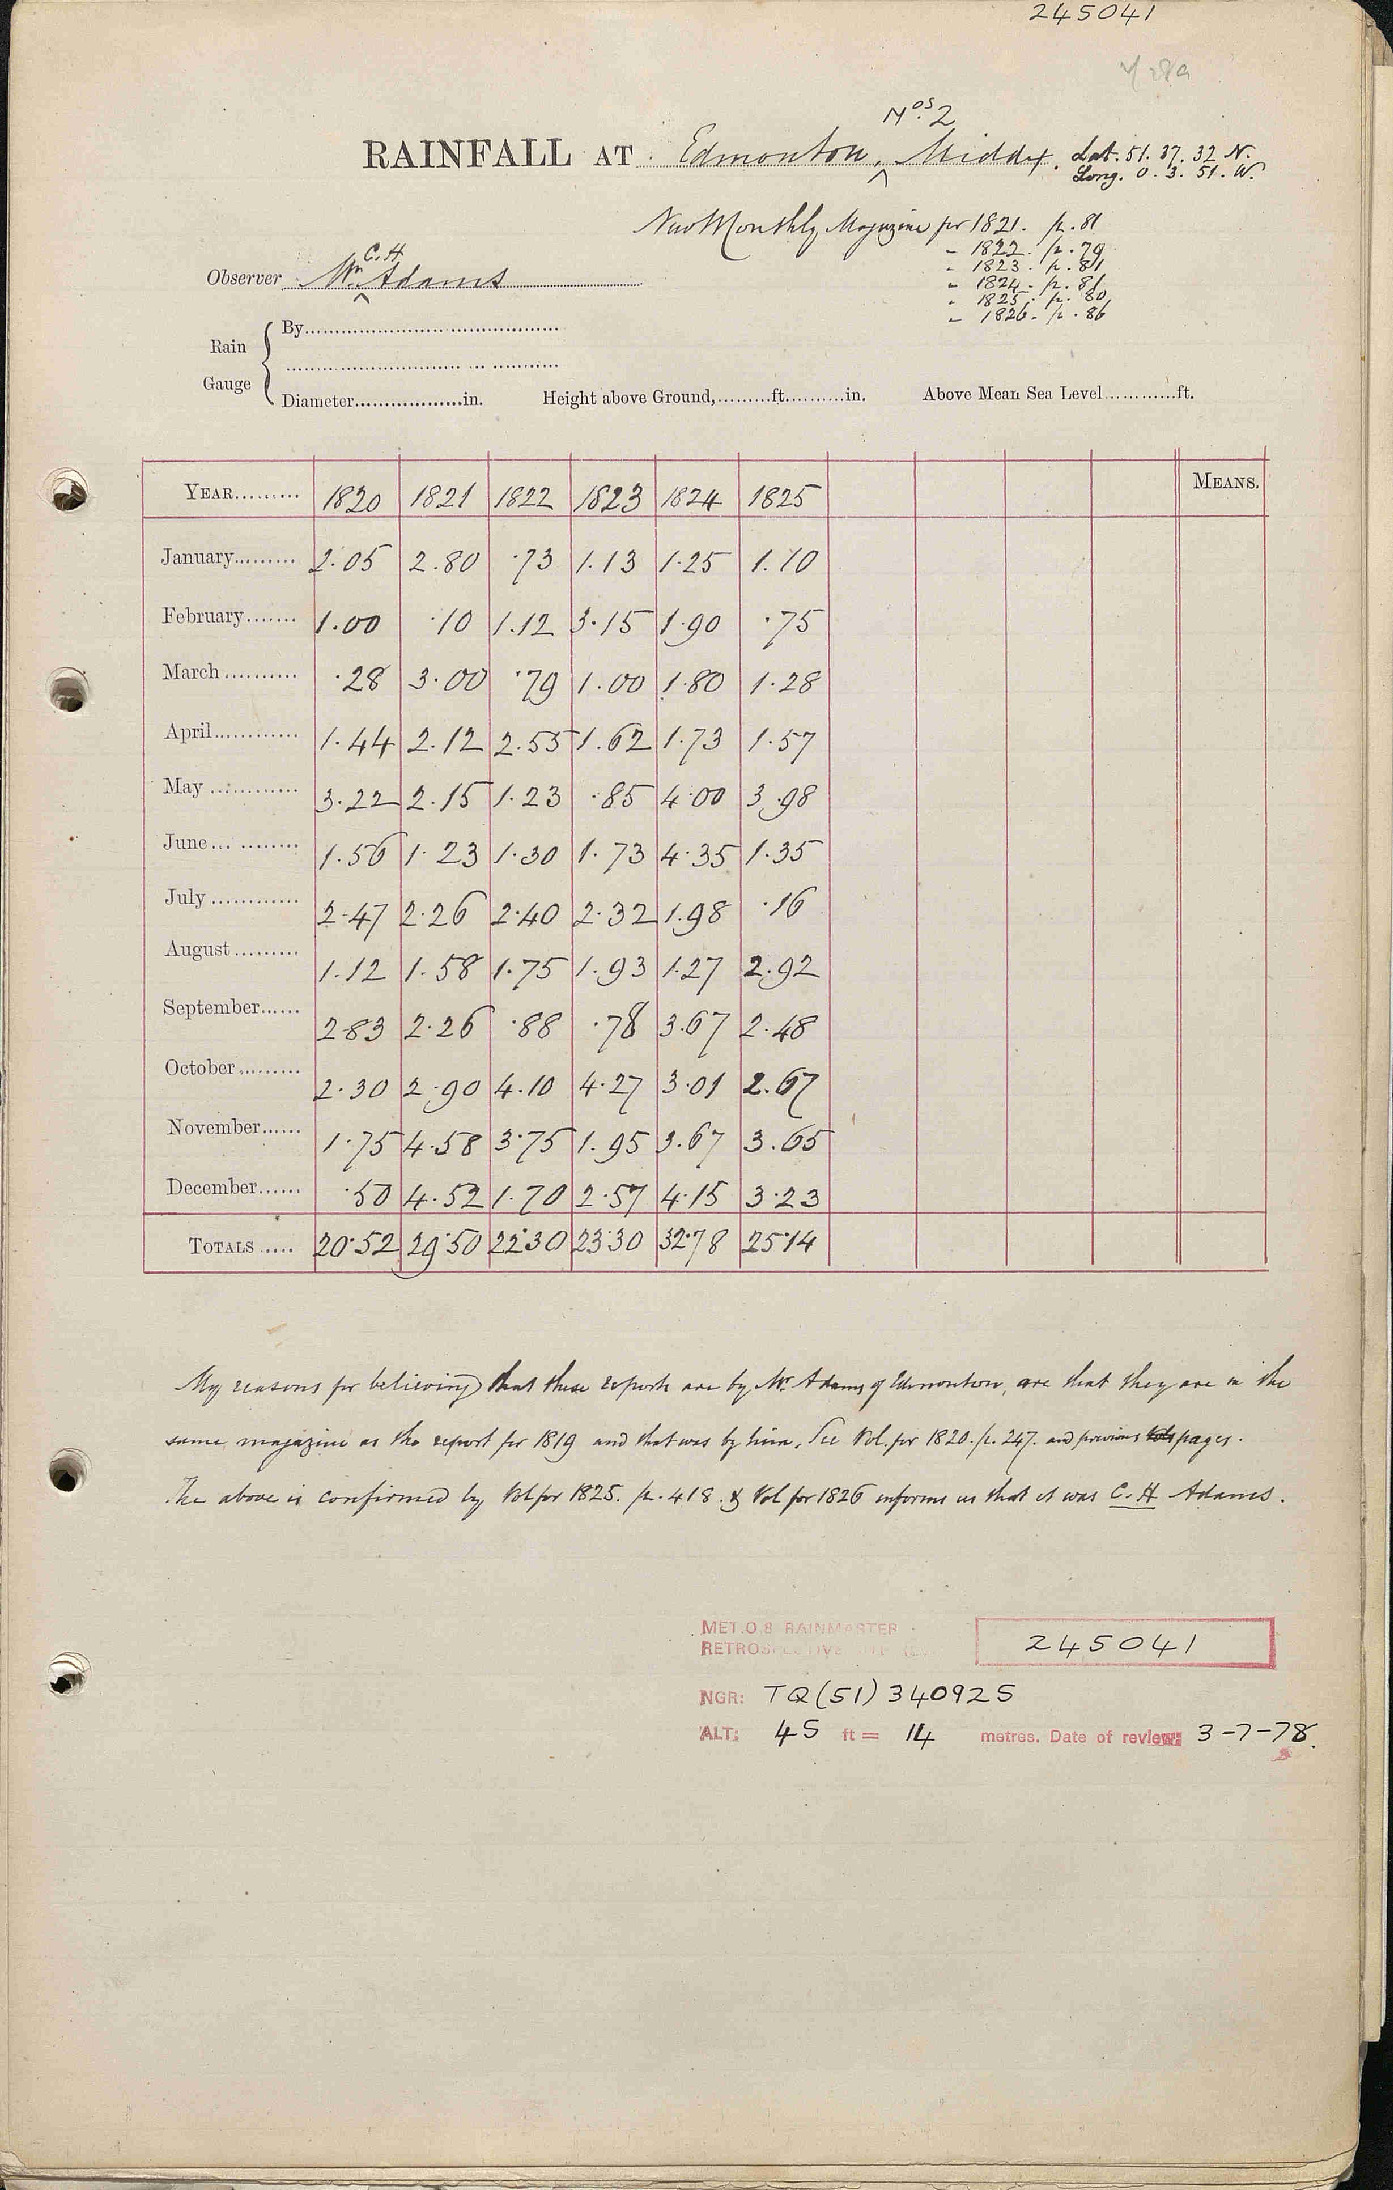 245041
Nos. 2
RAINFALL AT Edmonton, Middx. Lat. 51. 37. 32 N.
Long. 0. 3. 51. W.
New Monthly Magazine for 1821. p. 81
" 1822. p. 79
" 1823. p. 81
" 1824. p. 81
" 1825. p. 80
" 1826. p. 86
C. H
Observer Mr. Adams
Rain Gauge
By
Diameter in. Height above Ground, ft. in. Above Mean Sea Level ft.
YEAR 1820 1821 1822 1823 1824 1825 MEANS.
January 2.05 2.80 .73 1.13 1.25 1.10
February 1.00 .10 1.12 3.15 1.90 .75
March .28 3.00 .79 1.00 1.80 1.28
April 1.44 2.12 2.55 1.62 1.73 1.57
May 3.22 2.15 1.23 .85 4.00 3.98
June 1.56 1.23 1.30 1.73 4.35 1.35
July 2.47 2.26 2.40 2.32 1.98 .16
August 1.12 1.58 1.75 1.93 1.27 2.92
September 2.83 2.26 .88 .78 3.67 2.48
October 2.30 2.90 4.10 4.27 3.01 2.67
November 1.75 4.58 3.75 1.95 3.67 3.65
December .50 4.52 1.70 2.57 4.15 3.23
TOTALS 20.52 29.50 22.30 23.30 32.78 25.14
My reasons for believing that these reports are by Mr. Adams of Edmonton, are that they are in the
same magazine as the report for 1819 and that was by him. See Vol. for 1820. p. 247. and previous pages.
The above is confirmed by Vol for 1825. p. 418. & Vol for 1826 informs us that it was C. H Adams.
MET.O.8 RAINMASTER
RETROSPECTIVE
245041
NGR: TQ(51)340925
ALT: 45 ft = 14 metres. Date of review: 3-7-78.